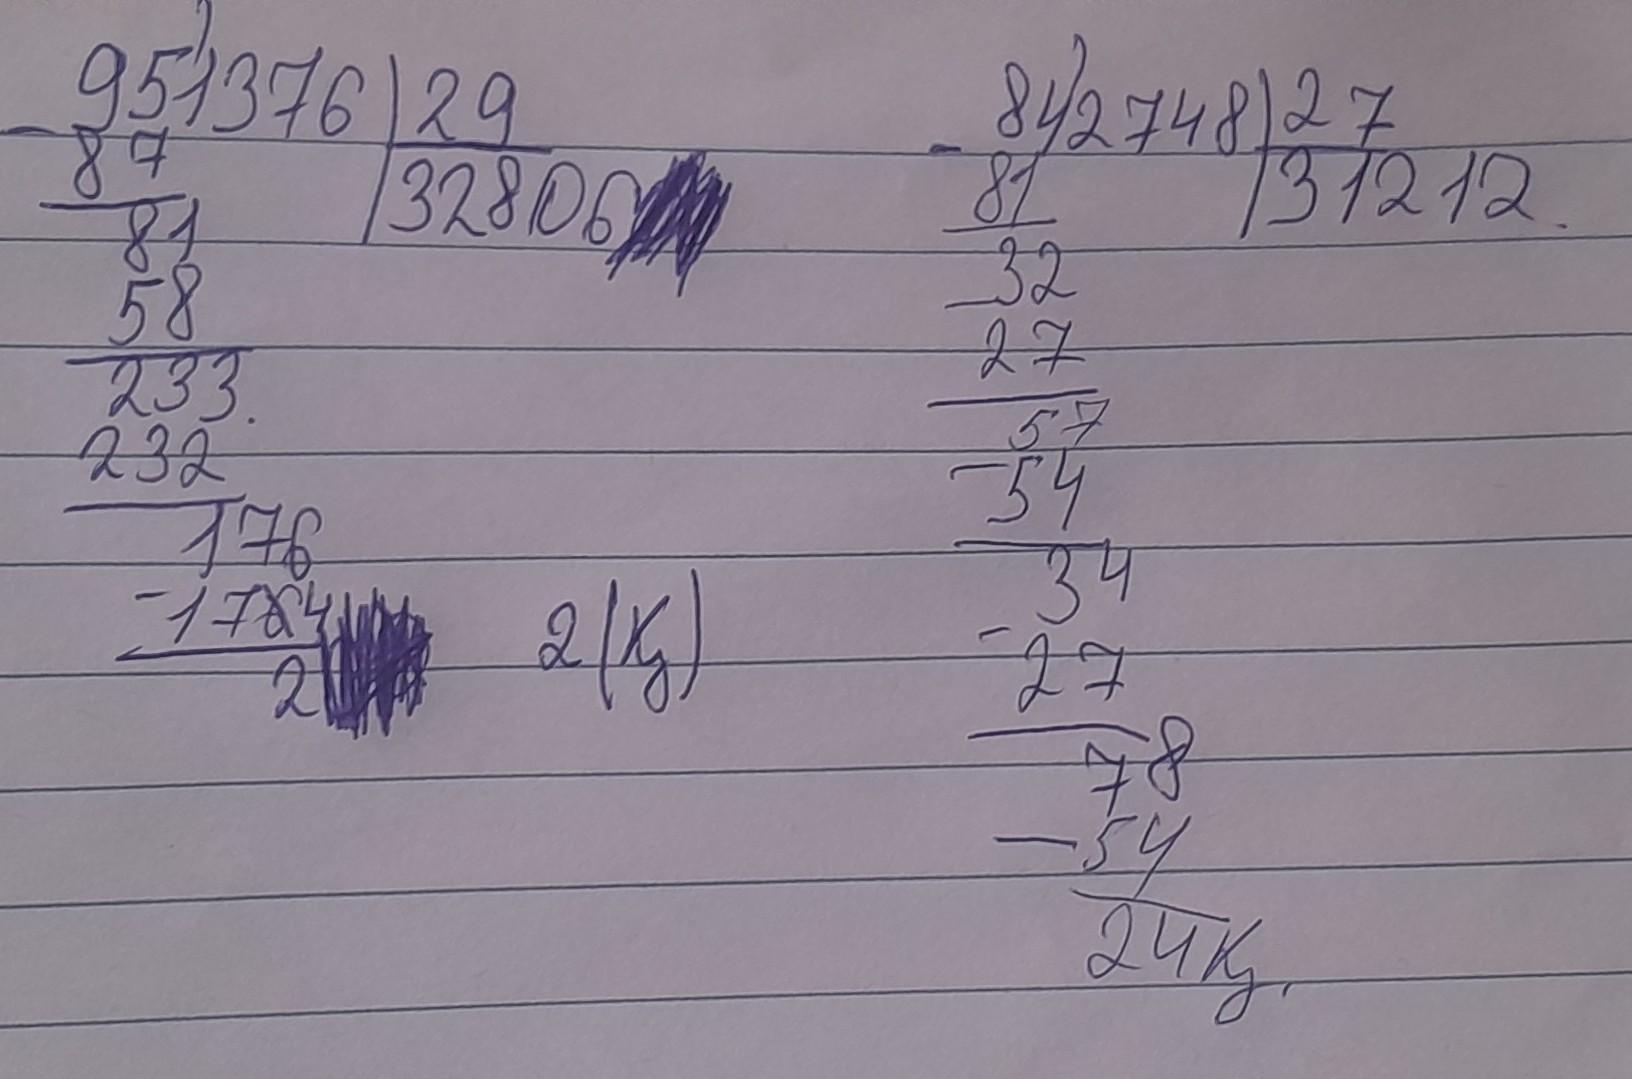 951376 29
87 32806
81
58
233.
232
176
-174
2 2 (Кз)
- 842748 27
81 31212.
32
-27
57
-54
34
-27
78
-54
24 Кз.